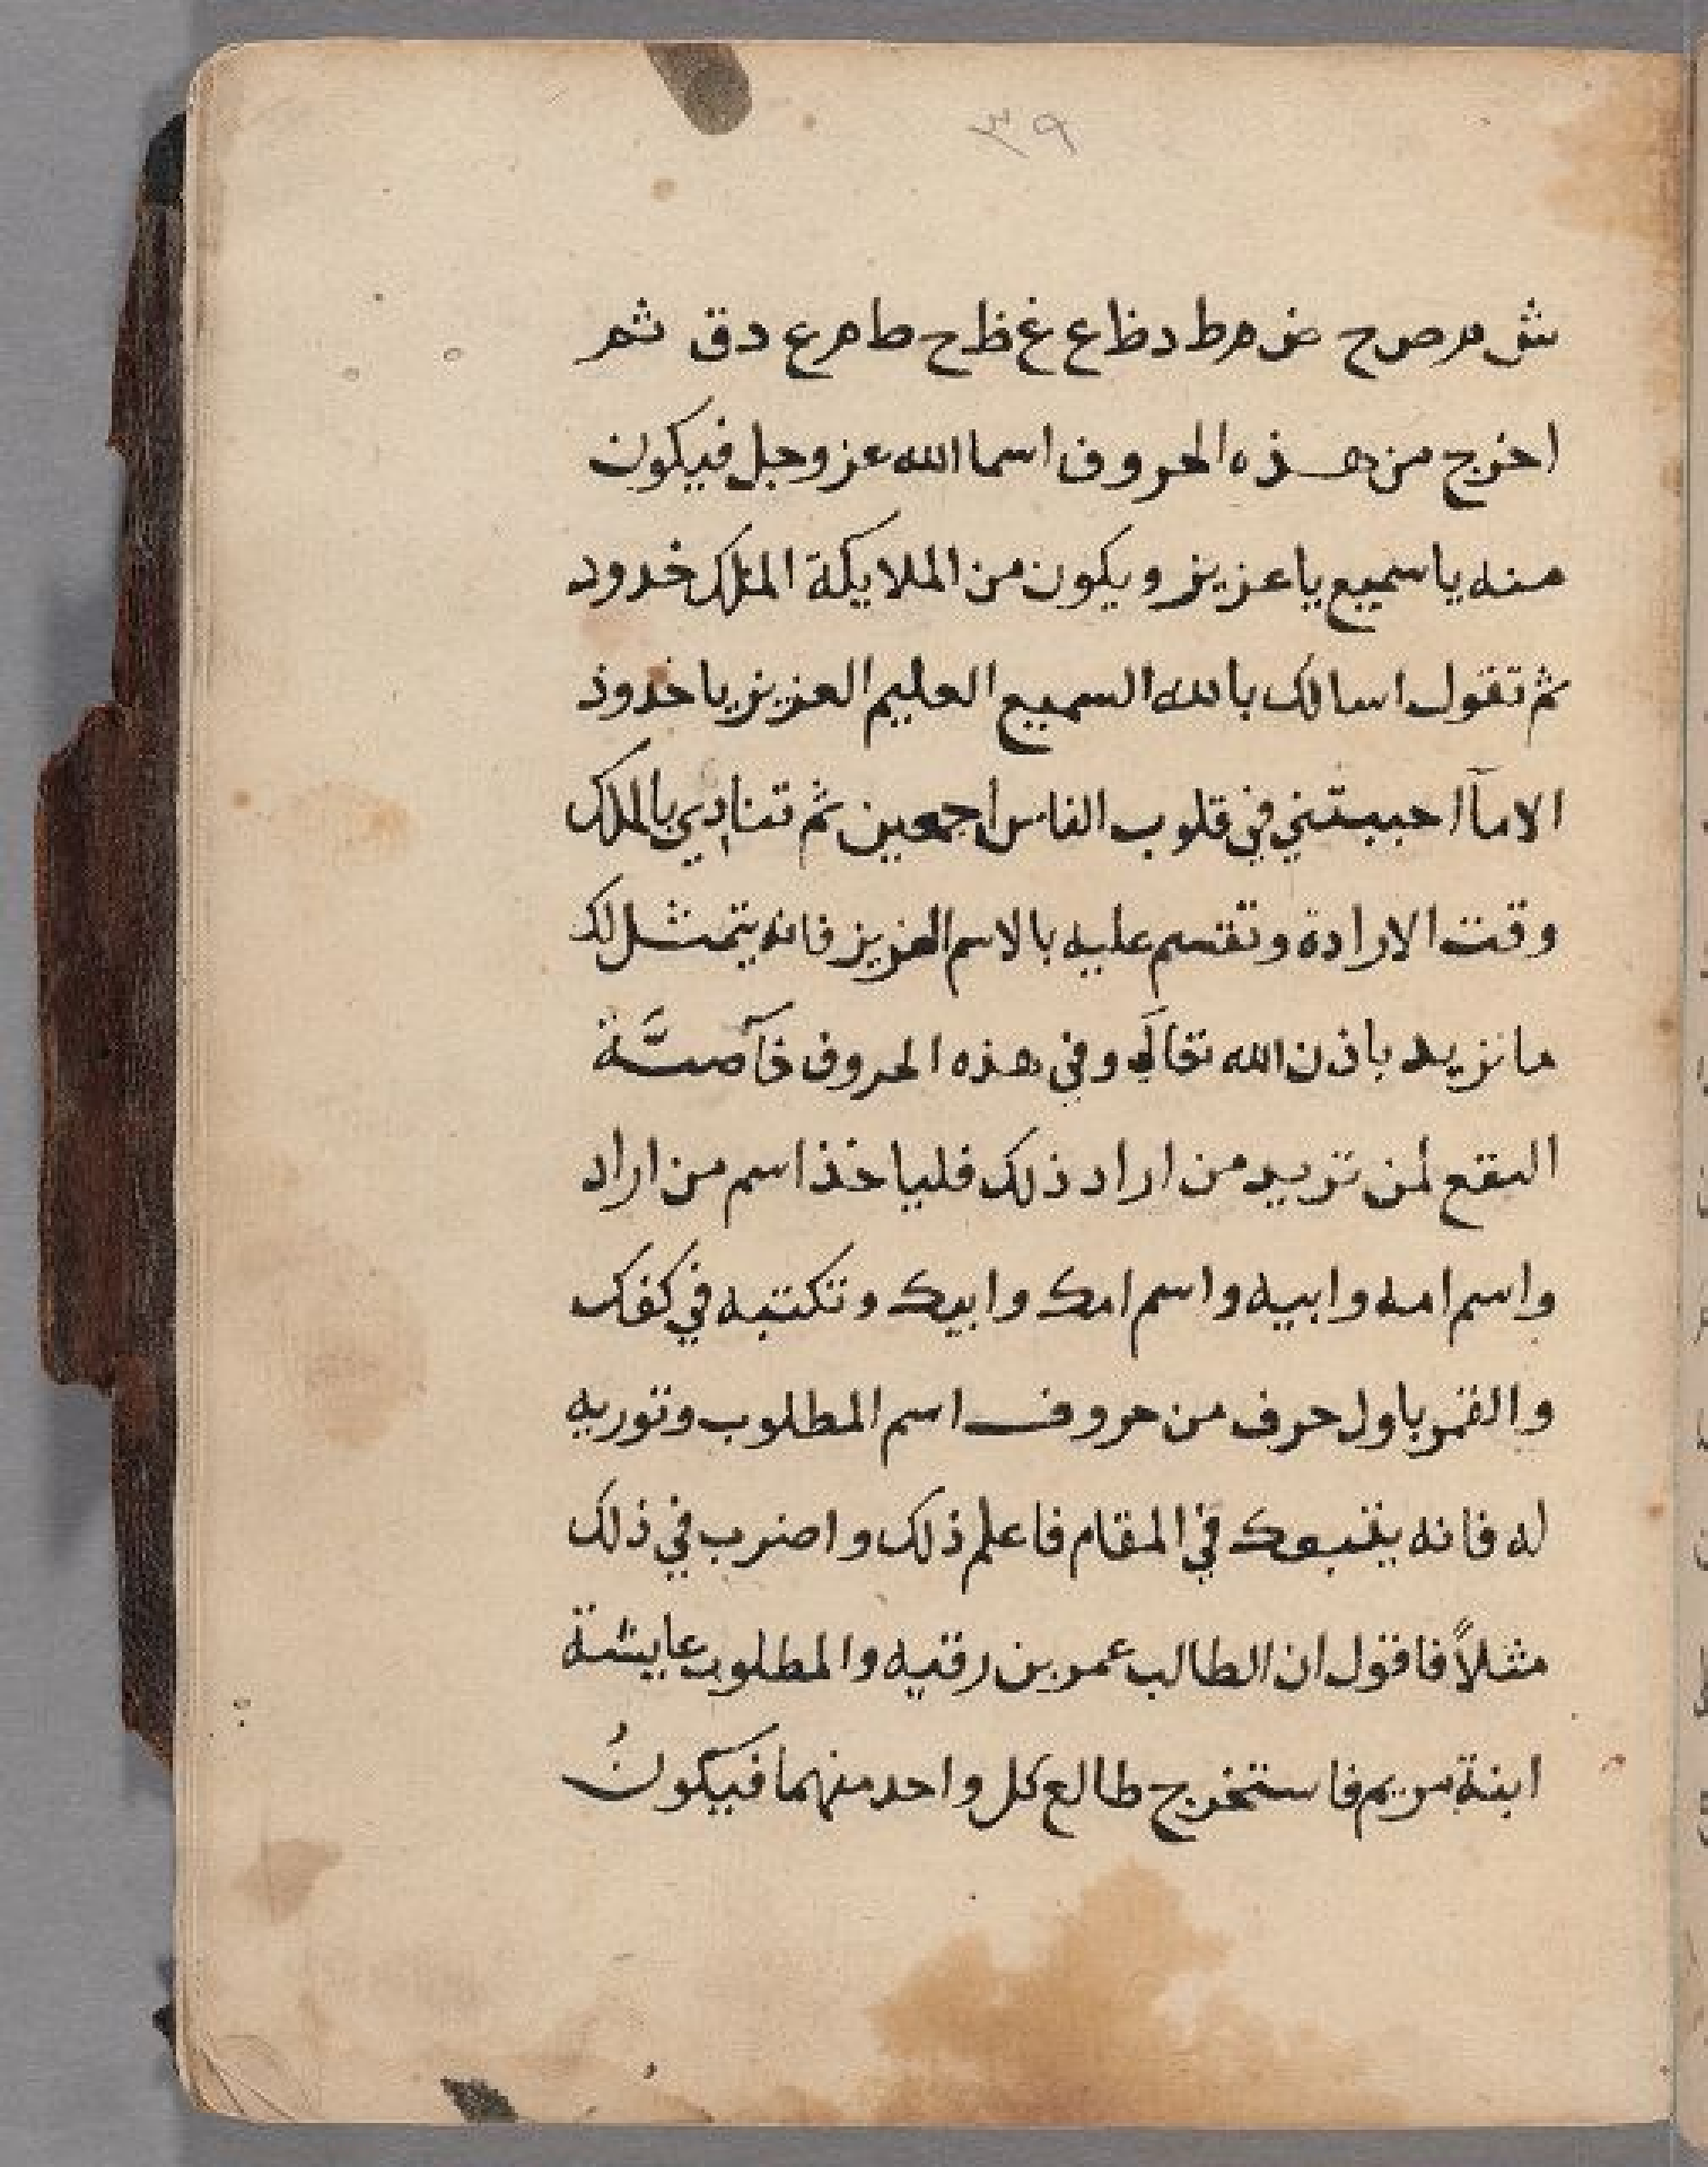 ٣٩
ش م ص ح ض ه ط د ظ ع غ ظ ح ط ا ه ع د ق ثم
اخرج من هذه الحروف اسما الله عز وجل فيكون
منه ياسميع ياعزيز ويكون من الملايكة الملك خدود
ثم تقول اسالك بالله السميع العليم العزيز ياخدوذ
الاماآ احببتني في قلوب الناس اجمعين ثم تنادي بالملك
وقت الارادة وتقسم عليه بالاسم العزيز فانه يتمثل لك
ما تزيد باذن الله تعالى وفي هذه الحروف خآصَّة
لمن تريد من اراد ذلك فلياخذ اسم من اراد
واسم امه وابيه واسم امك وابيك وتكتبه في كفك
باول حرف من حروف اسم المطلوب وتوريه
له فانه يتبعك في المقام فاعلم ذلك واضرب في ذلك
مثلاً فاقول ان الطالب عمر بن رقيه والمطلوب عايشة
ابنة مريم فاستخرج طالع كل واحد منهما فيكونُ